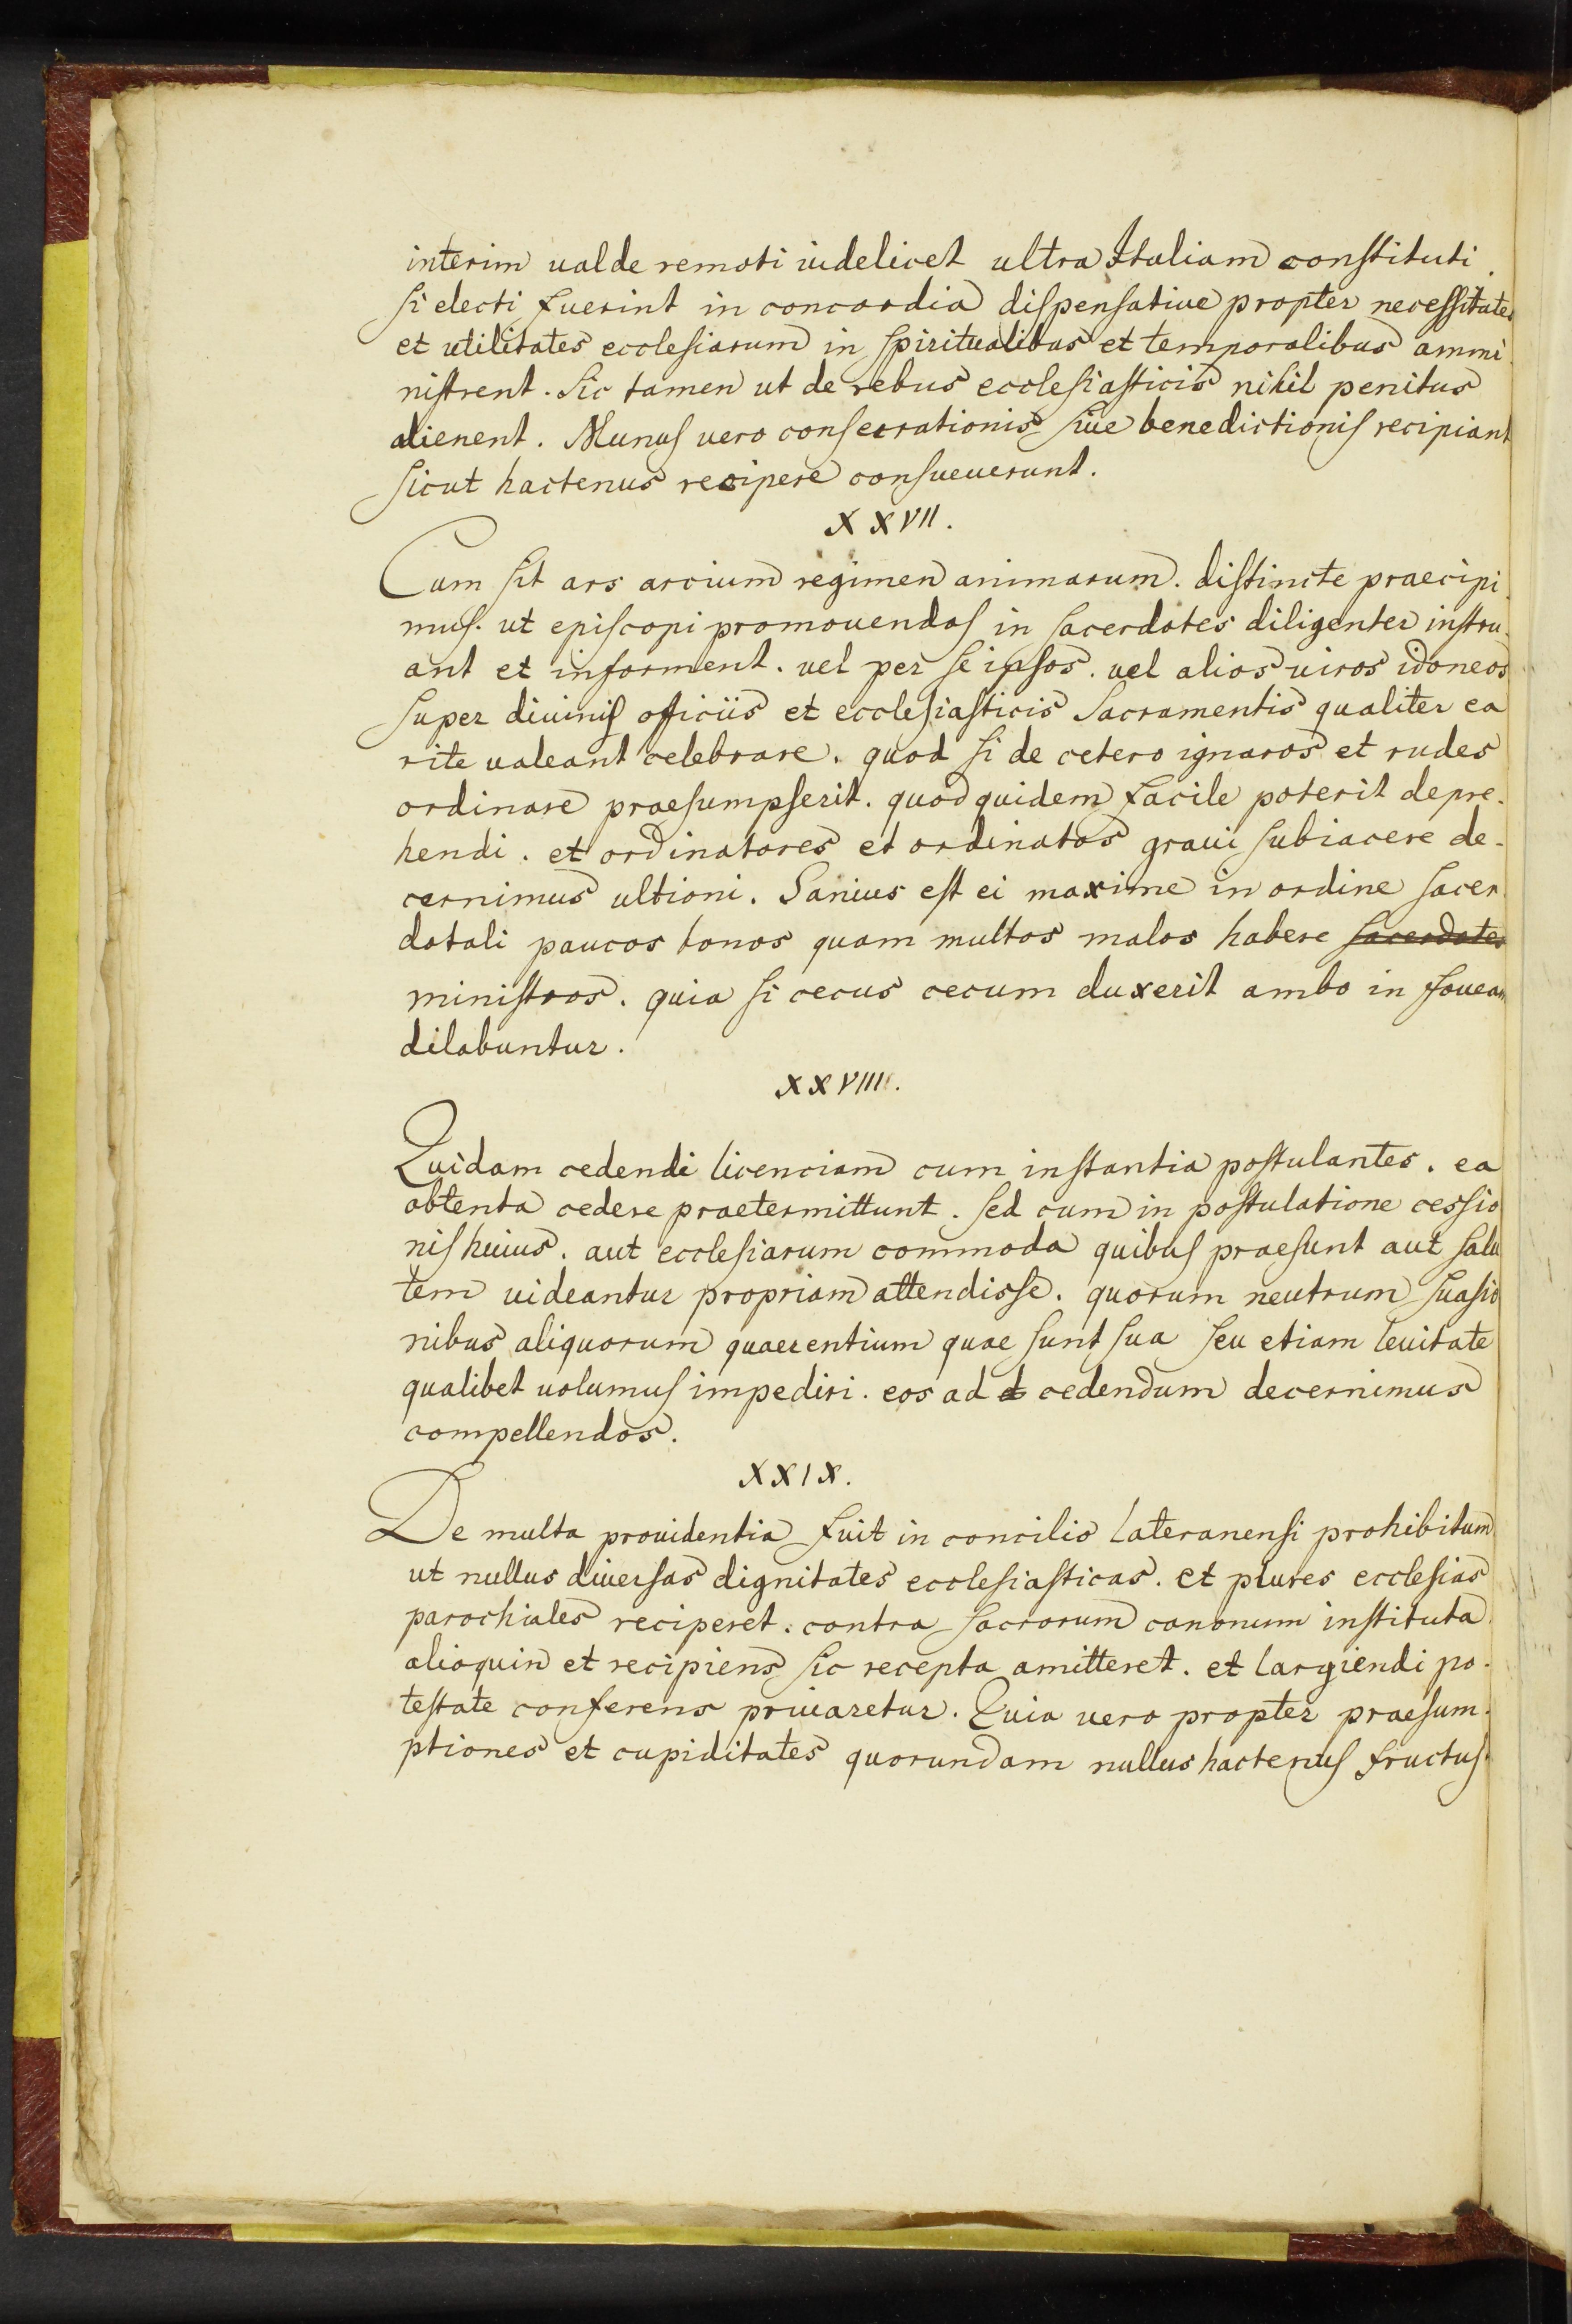 interim ualde remoti uidelicet ultra Italiam constituti.
si electi fuerint in concordia dispensatiue propter necessitates
et utilitates ecclesiarum in spiritualibus et temporalibus ammi-
nistrent. Sic tamen ut de rebus ecclesiasticis nihil penitus
alienent. Munus uero consecrationis siue benedictionis recipiant
sicut hactenus recipere consueuerunt.
XXVII.
Cum sit ars arcium regimen animarum. distincte praecipi-
mus. ut episcopi promouendos in sacerdotes diligenter instru-
ant et informent. uel per se ipsos. uel alios uiros idoneos
super diuinis officiis et ecclesiasticis Sacramentis qualiter ea
rite ualeant celebrare. quod si de cetero ignaros et rudes
ordinare praesumpserit. quod quidem facile poterit depre-
hendi. et ordinatores et ordinatos graui subiacere de-
cernimus ultioni. Sanius est ei maxime in ordine sacer-
dotali paucos bonos quam multos malos habere sacerdotes
ministros. quia si cecus cecum duxerit ambo in foueam
dilabuntur.
XXVIII.
Quidam cedendi licenciam cum instantia postulantes. ea
obtenta cedere praetermittunt. sed cum in postulatione cessio
nis huius. aut ecclesiarum commoda quibus praesunt aut salu
tem uideantur propriam attendisse. quorum neutrum suasio
nibus aliquorum quaerentium quae sunt sua seu etiam leuitate
qualibet uolumus impediri. eos ad d cedendum decernimus
compellendos.
XXIX.
De multa prouidentia fuit in concilio Lateranensi prohibitum
ut nullus diuersas dignitates ecclesiasticas. et plures ecclesias
parochiales reciperet. contra sacrorum canonum instituta
alioquin et recipiens sic recepta amitteret. et largiendi po-
testate conferens priuaretur. Quia uero propter praesum-
ptiones et cupiditates quorundam nullus hactenus fructus